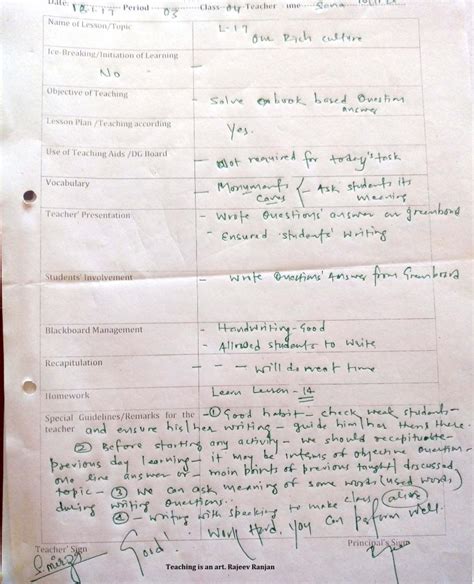 Date: 12.1.17 Period - 03 Class- 04 Teacher Sana
Name of Lesson/Topic L-17
Our Rich Culture
Ice-Breaking/Initiation of Learning
No
Objective of Teaching - Solve book based Question
answer
Lesson Plan /Teaching according Yes.
Use of Teaching Aids /DG Board - Not required for today's task
Vocabulary - Monuments - Ask students its
Caves meaning
Teacher' Presentation - Wrote Questions' answer on greenboard
- Ensured students' writing
Students' Involvement - Wrote Questions' Answer from Greenboard
Blackboard Management - Handwriting - Good
- Allowed students to write
Recapitulation - - - will do next time
Homework Learn Lesson - 14
Special Guidelines/Remarks for the teacher - ① Good habit - check weak students -
and ensure his/her writing - guide him/her there.
② Before starting any activity - we should recapitulate -
previous day learning - it may be in terms of objective question -
one line answer or - main points of previous taught/discussed
topic - ③ We can ask meaning of some words (used words)
during writing Questions..
④ - writing with speaking to make class alive
Good! Work Hard. You can perform well.
Teacher' Sign Principal's Sign
Teaching is an art. Rajeev Ranjan